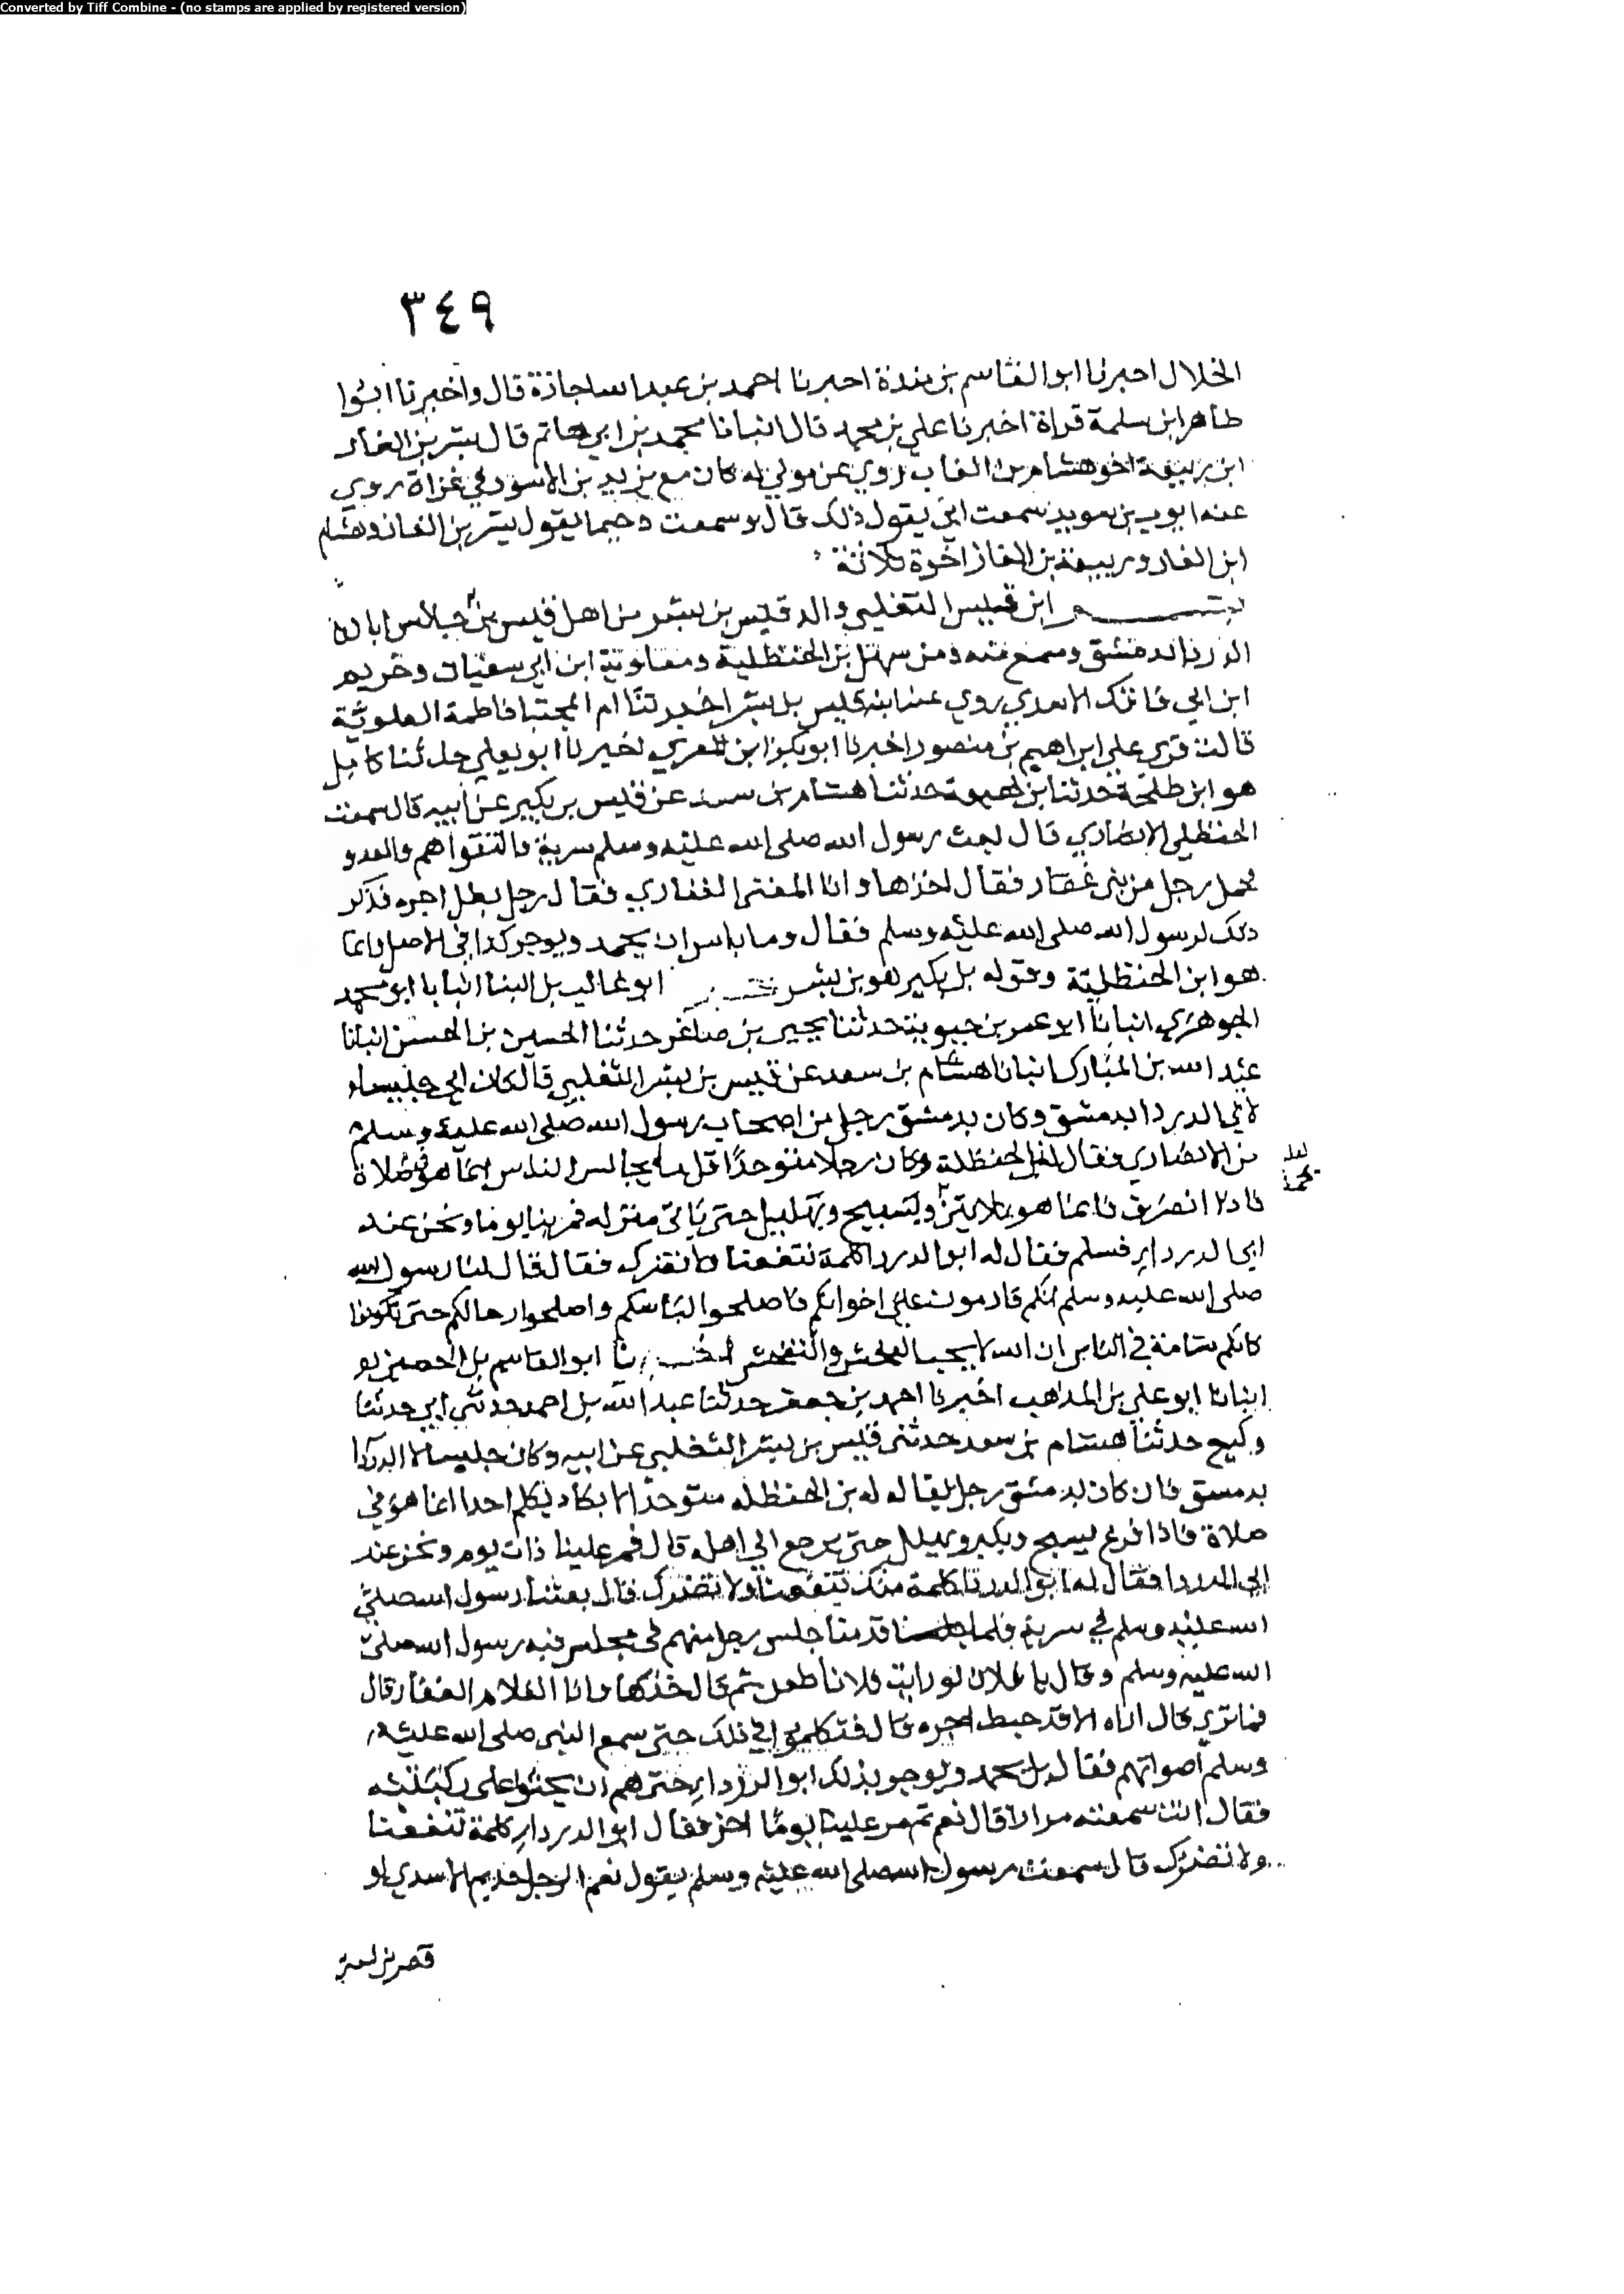 Converted by Tiff Combine - (no stamps are applied by registered version)
٣٤٩
الخلال احبرنا ابو القاسم بن مندة احبرنا احمد بن عبد اساجازة قال واخبرنا ابوا
طاهر ابن سلمة قراة اخبرنا علي بن محمد قال انبانا محمد بن ابي حاتم قال بشر بن الغار
ابن ربيعة اخو هشام بن الغاب روي عن مولي له كان مع يزيد بن الاسود في غزاة روي
عنه ايوب بن سويد سمعت ابي يقول ذلك قال وسمعت دحيما يقول بشر بن الغاز وهشام
ابن الغار وربيعة بن الغاز اخوة ثلاثة
بشر ابن قيس التغلبي والد قيس بن بشر من اهل قيس بن جلاس ابا
الدردا بدمشق وسمع منه ومن سهل بن الحنظلية ومعاوية ابن ابي سفيان وخريم
ابن ابي فاتك الاسدي روي عنه ابنه قيس بل بشر اخبرتنا ام المجتبا فاطمة العلوية
قالت قري علي ابراهيم بن منصور اخبرنا ابو بكر ابن المقري اخبرنا ابو يعلي حدثنا كامل
هو ابن طلحة حدثنا بن لهيعة حدثنا هشام بن سعد عن قيس بر بكير عن ابيه قال سمعت
الحنظلي الانصاري قال بعث رسول الله صلى الله عليه وسلم سرية فالتقوا هم والعدو
فحمل رجل من بني غفار فقال لخذها وانا المفتى الغفاري فقال رجل بطل اجره فذكر
ذلك لرسول الله صلى الله عليه وسلم فقال وما باس ان يحمد ويوجر كذا في الاصل وانما
هو ابن الحنظلية وقوله بل بكير هو بن بشر اخبر ابو غالب بل البنا انبابا ابو محمد
الجوهري انبانا ابو عمر بن حيويه حدثنا يحيي بن صاغر حدثنا الحسين بن الحسن انبانا
عبد الله بن المبارك انبانا هشام بن سعد عن قيس بن بشر التغلبي قال كان ابي جليسا
لابي الدردا بدمشق وكان بدمشق رجل من اصحاب رسول الله صلى الله عليه وسلم
من الانصاري فقال له بن الحنظلة وكان رجلا متوحدا قل ما يجالس الناس انما هو في صلاة
فادا انصرف فانما هو ويسبيح ويهليل حتى ياتي منزله فمر بنا يوما ونحن عند
ابي الدرداء فسلم فقال له ابو الدردا كلمة تنفعنا ولا تضرك فقال قال لنا رسول الله
صلى الله عليه وسلم انكم قادمون علي اخوانكم فاصلحوا لباسكم واصلحوا رحالكم حتى تكونوا
كانكم شامة في الناس ان الله لا يحب الفحش والتفحش اخبرنا ابو القاسم بل الحصين
انبانا ابو علي بن المذهب اخبرنا احمد بن جعفر حدثنا عبد الله بل احمد حدثني ابي حدثنا
وكيع حدثنا هشام بن سعد حدثني قيس بن بشر التغلبي عن ابيه وكان جليسا لا الدردا
بدمسق قال كان بدمشق رجل يقال له له بن الحنظله متوحدا لا يكاد يكلم احدا انما هو في
صلاة فاذا فرغ يسبح ويكبر ويهلل حتى يرجع الي اهله قال فمر علينا ذات يوم ونحن عند
ابي الدردا فقال له ابو الدردا كلمة منك تنفعنا ولا تضرك قال بعثنا رسول اسصلى
الله عليه وسلم في سرية فلما قدمنا جلس رجل منهم في مجلس فيه رسول الله صلى
الله عليه وسلم وقال يا فلان لو رايت فلانا طعن ثم قال خذها وانا الغلام الغفار قال
فما تري قال اراه الا قد حبط اجره قال فتكلموا في ذلك حتى سمع النبى صلى الله عليه
وسلم اصواتهم فقال بل يحمد ويوجر بذلك ابو الدردار حتى هم ان يجثو على ركبتيه
فقال انت سمعته مرارا قال نعم ثم مر علينا يوما اخر فقال ابو الدردار كلمة تنفعنا
ولا تضرك قال سمعت رسول اسصلى الله عليه وسلم يقول نعم الرجل خريم الاسدي لو